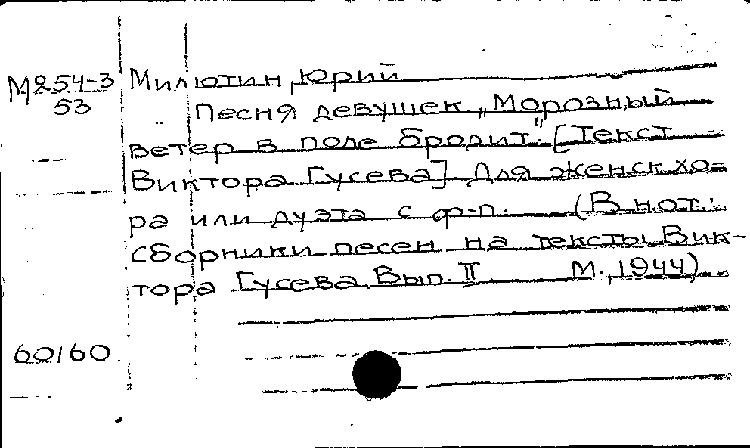 М254-3 Милютин, Юрий
53 Песня девушек „Морозный
ветер в поле бродит." [Текст
Виктора Гусева] Для женск хо-
ра или дуэта с ф-п. (В нот.:
сборники песен на тексты Вик-
тора Гусева. Вып. II М., 1944)
60160